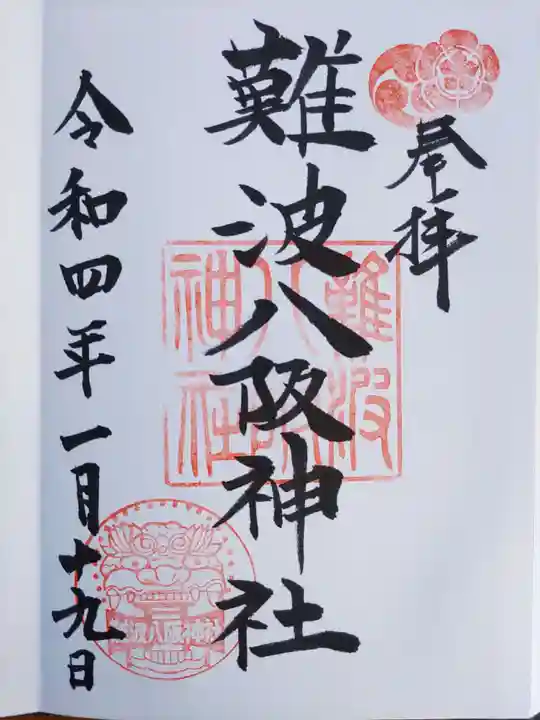 奉拝
難波八阪神社
難波八阪神社
難波八阪神社
令和四年一月十九日